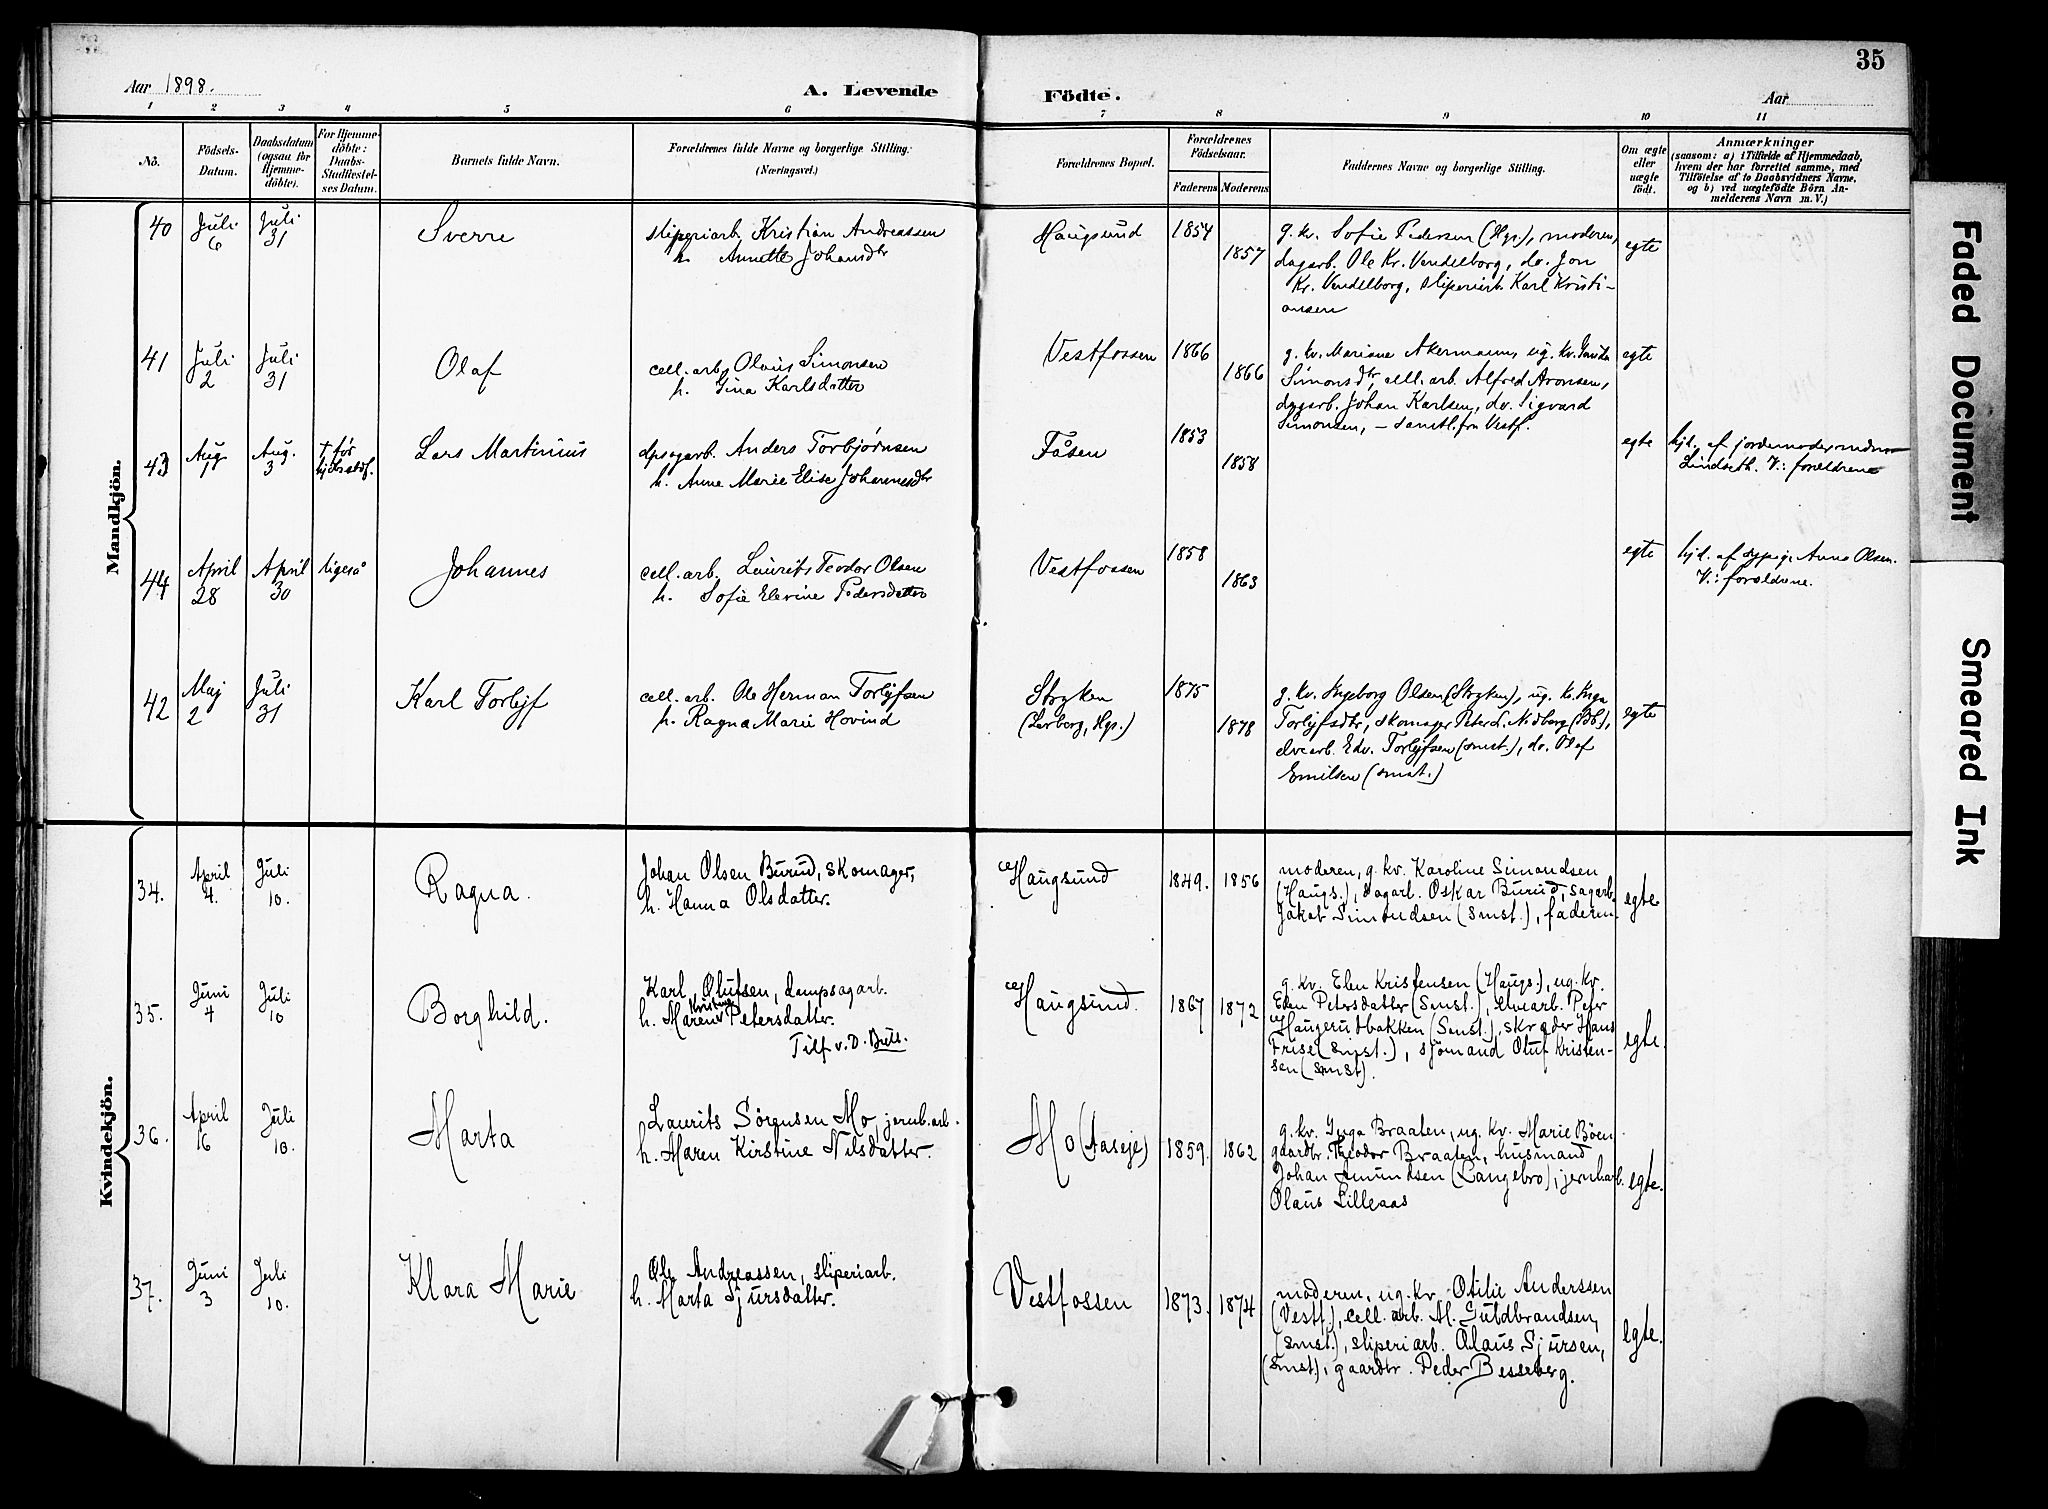 35
Aar 1898.
A. Levende
Födte.
Aar
1 2 3 4 5 6 7 8 9 10 11
No.
Födsels-
Datum.
Daabsdatum
(ogsaa for
Hjemme-
döbte).
For Hjemme-
döbte:
Daabs-
Stadfæstel-
ses Datum.
Barnets fulde Navn.
Forældrenes fulde Navne og borgerlige Stilling.
(Næringsvei.)
Forældrenes Bopæl.
Forældrenes
Födselsaar.
Faderens Moderens
Faddernes Navne og borgerlige Stilling.
Om ægte
eller
uægte
født.
Anmærkninger
(saasom: a) i Tilfælde af Hjemmedaab,
hvem der har forrettet samme, med
Tilföielse af to Daabsvidners Navne,
og b) ved uægtefödte Börn An-
melderens Navn m. V.)
Mandkjön.
40
Juli
6
Juli
31
Sverre
sliperiarb. Kristian Andreassen
h. Annette Johansdtr
Haugsund
1854
1857
g. kv. Sofie Pedersen (Hgs.), moderen,
dagarb. Ole Kr. Vendelborg, do. Jon
Kr. Vendelborg, sliperiarb. Karl Kristi-
ansen
egte
41
Juli
2
Juli
31
Olaf
cell. arb. Olaus Simonsen
h. Gina Karlsdatter
Vestfossen
1866
1866
g. kv. Mariane Akermann, ug. kv.
Simonsdtr, cell. arb. Alfred Aronsen,
dagarb. Johan Karlsen, do. Sigvard
Simonsen, – samtl. fra Vestf.
egte
43
Aug
1
Aug.
3
† før
Lars Martinius
dpsagarb. Anders Torbjørnsen
h. Anne Marie Elise Johannesdtr
Fåsen
1853
1858
egte
hjd. af jordemoder
Lindseth. V.: forældrene
44
April
28
April
30
ligeså
Johannes
cell. arb. Laurits Teodor Olsen
h. Sofie Elevine Pedersdatter
Vestfossen
1858
1863
egte
hjd. af Anne Olsen.
V.: forældrene.
42
Maj
2
Juli
31
Karl Torlejf
cell. arb. Ole Herman Torlejfsen
h. Ragna Marie Hovind
Stryken
(Lerberg, Hgs.)
1875
1878
g. kv. Ingeborg Olsen (Stryken), ug. kv. Inga
Torlejfsdtr, skomager Peter L. Nidberg
elvearb. Edv. Torlejfsen (smst.), do. Olaf
Emilsen (smst.)
egte
Kvindekjön.
34.
April
4.
Juli
10.
Ragna.
Johan Olsen Burud, skomager,
h. Hanna Olsdatter.
Haugsund
1849. 1856
moderen, g. kv. Karoline Simondsen
(Haugs.), dagarb. Oskar Burud, sagarb.
Jakob Simondsen (smst.), faderen.
egte
35.
Juni
4
Juli
10
Borghild.
Karl Olufsen, dampsagarb.
Kristine
h. Maren Petersdatter.
Tilf v. D. Bull.
Haugsund.
1867 1872
g. kv. Elen Kristensen (Haugs.), ug. kv.
Eden Petersdatter (Smst.), elvearb. Peter
Haugerudbakken (Smst.), skræder Hans
Friise (smst.), sjömand Oluf Kristen-
sen (smst).
egte.
36.
April
16
Juli
10.
Marta
Laurits Sörensen Mo, jernb. arb.
h. Maren Kirstine Nilsdatter.
Mo (Aaseje)
1859. 1862
g. kv. Inga Braaten, ug. kv. Marie Böen
gaardbr. Theodor Braaten, husmand
Johan Amundsen (Langebro), jernbarb.
Olaus Lilleaas
egte.
37.
Juni
3
Juli
10.
Klara Marie
Ole Andreassen, sliperiarb.
h. Marta Sjursdatter.
Vestfossen
1873. 1874
moderen, ug. kv. Otilie Anderssen
(Vestf.), cell. arb. M. Guldbrandsen,
(smst.), sliperiarb. Olaus Sjursen,
(smst), gaardbr. Peder Besseberg.
egte.
Faded Document
Smeared Ink